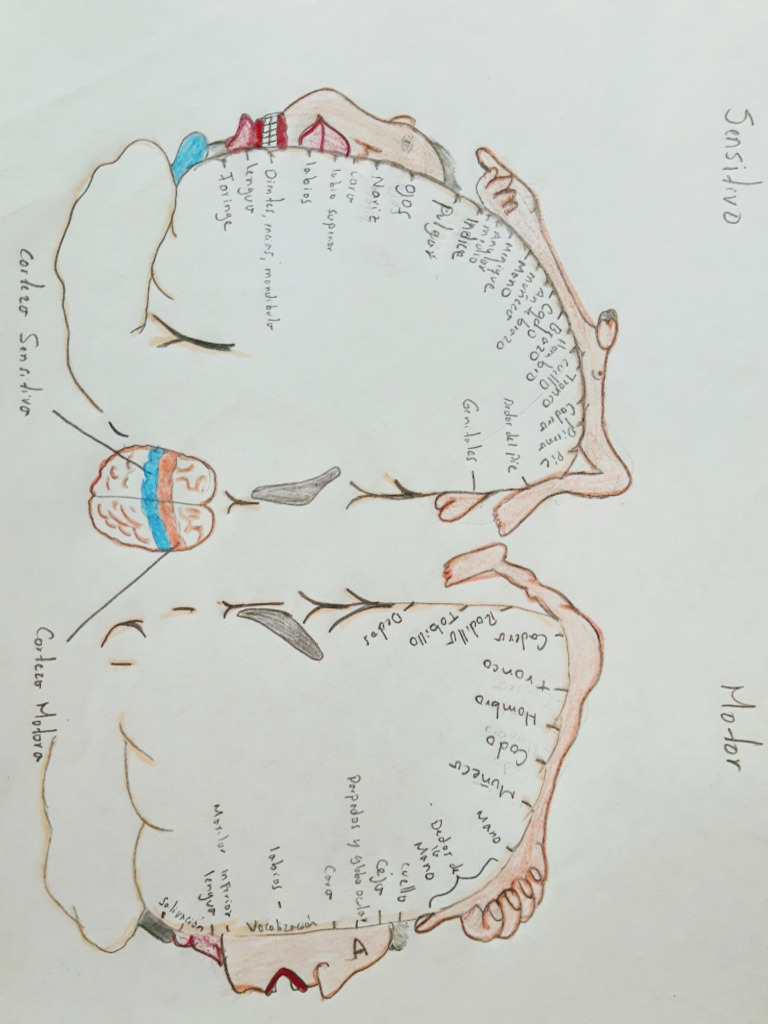 Sensitivo
Genitales
Dedos del pie
Pie
Pierna
Cadera
Tronco
Cuello
Hombro
Brazo
Codo
Ante
brazo
muñeca
Mano
Miñique
Anular
medio
Indice
Pulgar
Ojos
Nariz
Cara
labio superior
labios
Dientes, encias, mandibula
lengua
Faringe
Corteza Sensitiva
Motor
Dedos
Tobillo
Rodilla
Cadera
tronco
Hombro
Codo
Muñeca
Mano
Dedos de
la
Mano
cuello
Ceja
Parpados y globo ocular
Cara
labios
Vocalización
Maxilar Inferior
lengua
Salivación
Corteza Motora